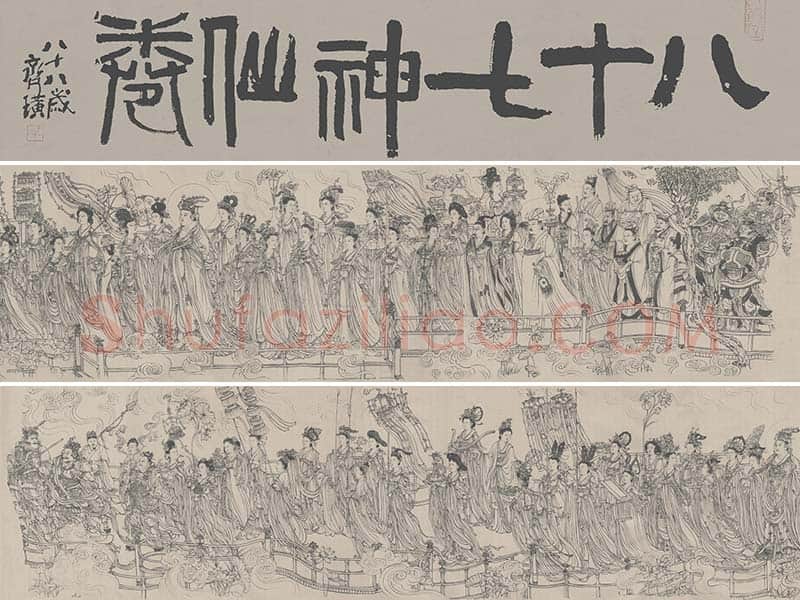 八十七神仙卷
八十八歲
齊璜
Shufaziliao.COM